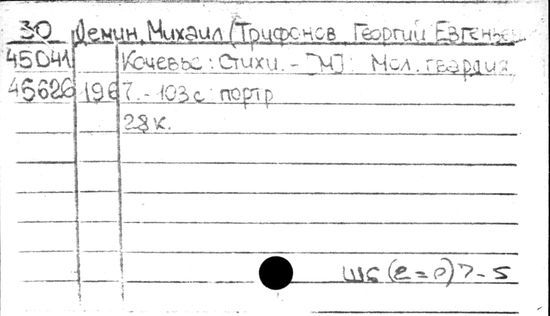 30 Демин, Михаил (Трифонов Георгий Евгеньев
45041 Кочевье: Стихи. - [М]: Мол. гвардия,
45626 1967. - 103 с: портр
28 к.
Ш6 (2=Р)7-5